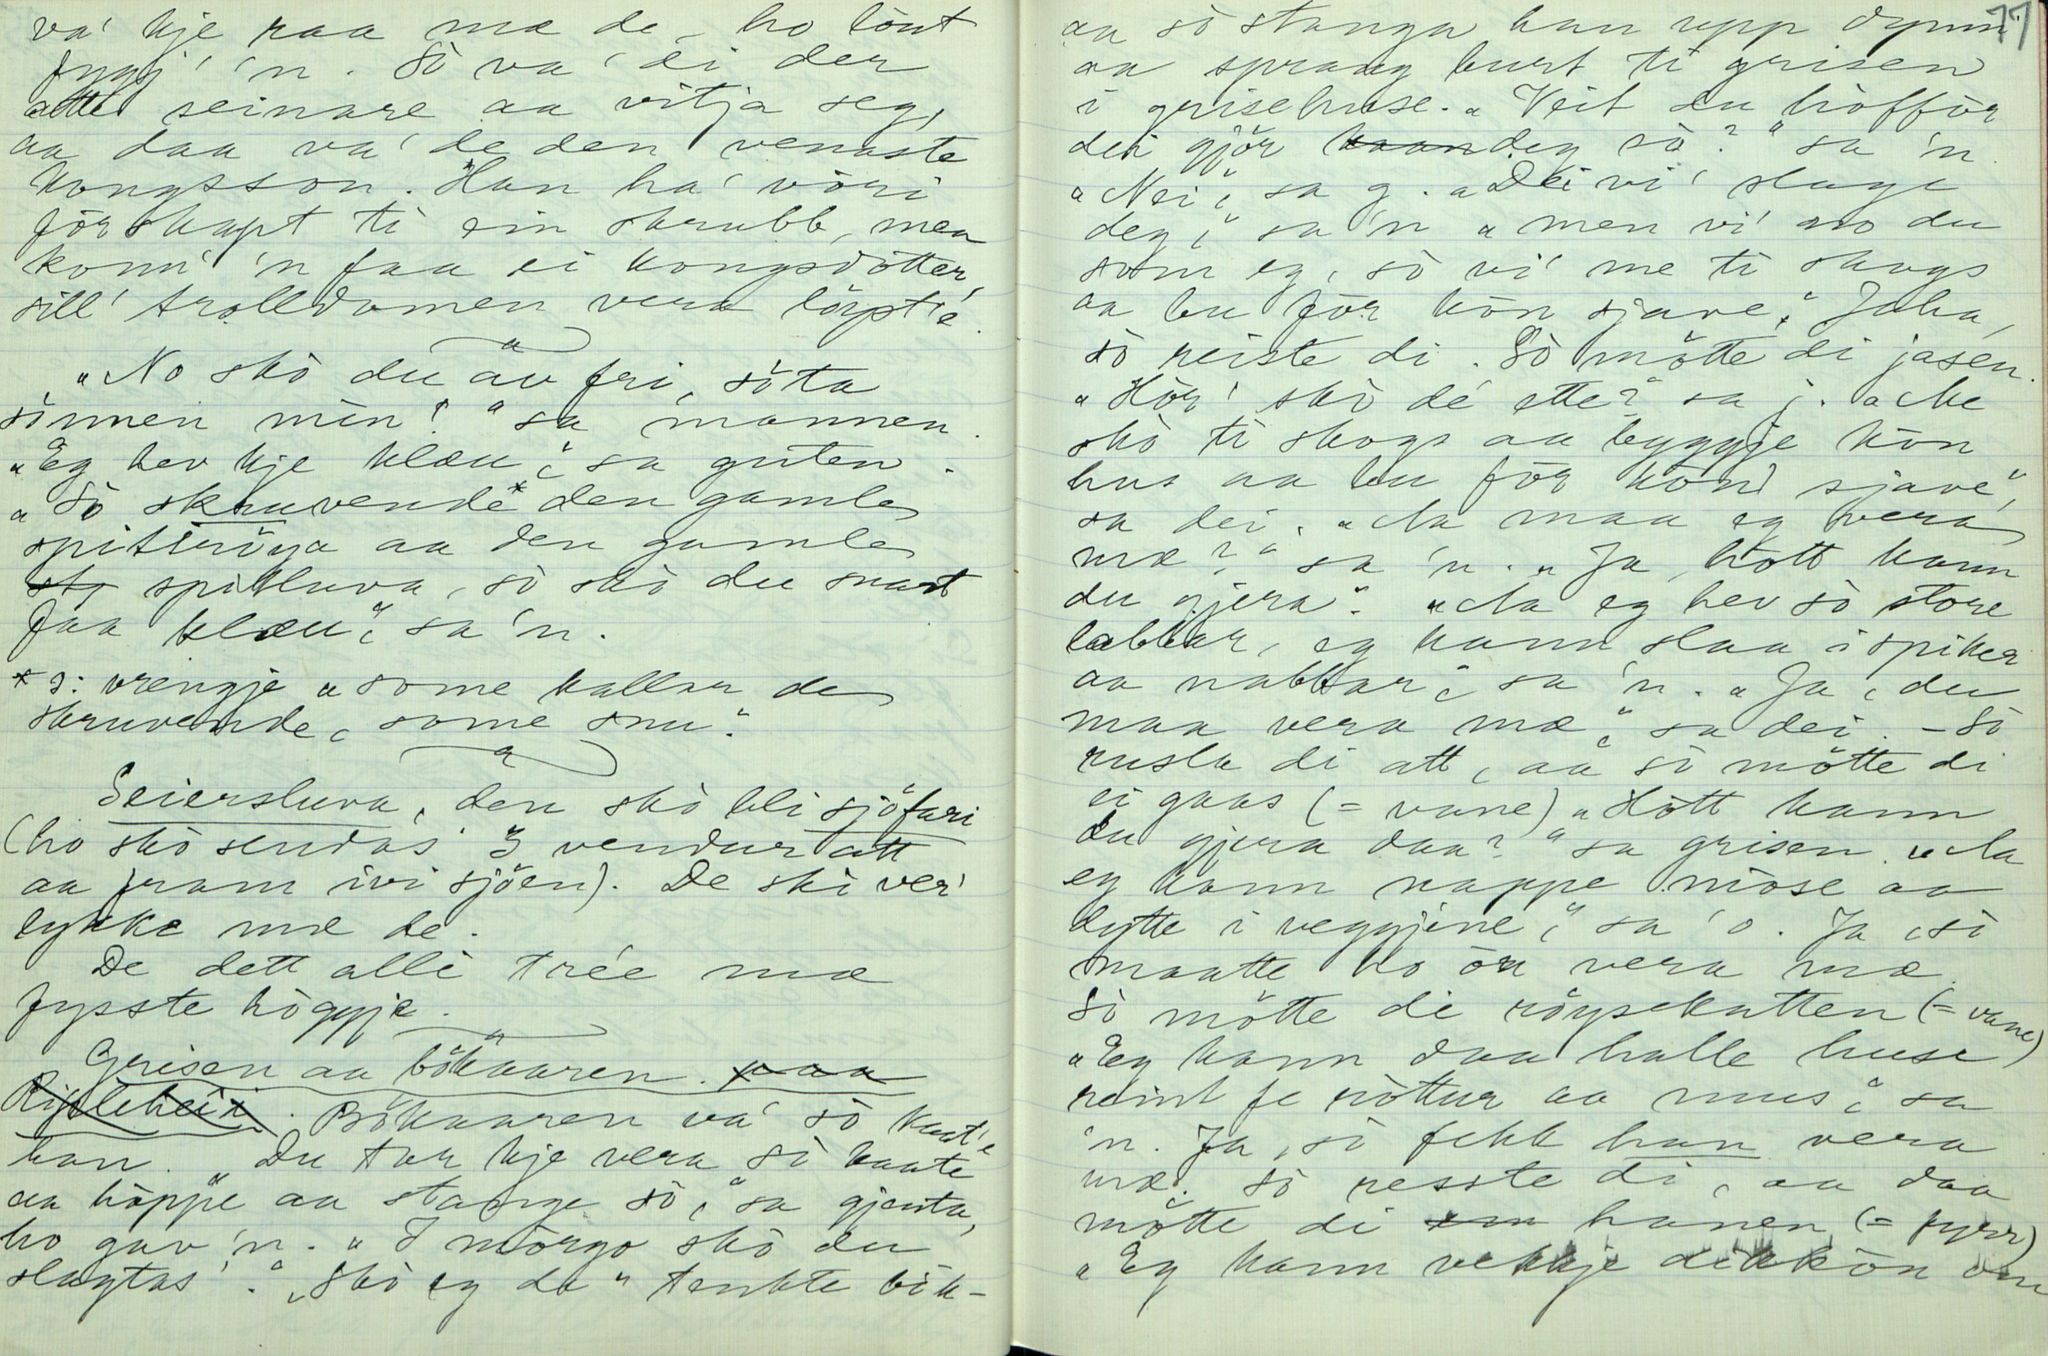 va' kje raa mæ de, ho lönt
fygj' 'n. Sò va' di der
atte seinare aa vitja seg,
aa daa va' de den venaste
kongsson. Han ha' vöri
förskapt ti ein skrubb, men
konn' 'n faa ei kongsdötter,
sill' trolldomen vera löypt'e.
"No skò du au fri, söta
sònnen min!" sa mannen.
"Eg hev kje klæu", sa guten.
"Sò skruvende* den gamle
spittröya aa den gamle
spikluva, sò skò du snart
faa klæu", sa 'n.
* ɔ: vrengje "some kallar de
skruvende, some snu".
Seiersluva, den skò bli sjöfari
(ho skò sendas' 3 vendur att
aa fram ivi sjöen). De ski ver'
lykke mæ de.
De dett alli trée mæ
fysste högyje.
Grisen aa bökaaren. paa
Ripleheii. Bökaaren va' sò kaat'e
han. "Du tar kje vera sò kaate
aa höppe aa stange sò," sa gjenta,
ho gav 'n. "I mörgo skò du
slagtas'." "Skò eg de" tenkte bök-
77
aa sò stanga han upp dynn'
aa sprang burt ti grisen
i grisehuse. "Veit du hòfför
dei gjör deg sò?" sa 'n.
"Nei", sa g. "Dei vi' slage
deg," sa 'n "men vi' no du
som eg, sò vi' me ti skogs
aa bu för kòn sjave." Jaha,
sò reiste di. Sò mötte di jasen.
"Hör' skò dé ette?" sa j. "Me
skò ti skogs aa byggje kòn
hus aa bu för kòn sjave",
sa dei. "Aa maa eg vera
mæ?" sa 'n. "Ja, hòtt kann
du gjera". "Aa eg hev sò store
labbar, eg kann slaa i spiker
aa nabbar", sa 'n. "Ja, du
maa vera mæ," sa dei. - Sò
rusla di att, aa sò mötte di
ei gaas (= vane) "Hòtt kann
du gjera daa?" sa grisen. "Aa
eg kann nappe mòse aa
dytte i veggjine," sa 'o. Ja, sò
maatte ho òu vera mæ.
Sò mötte di röysekatten (= vane)
"Eg kann daa halle huse
reint fe ròttur aa mus", sa
'n. Ja, sò fekk han vera
mæ. Sò resste di, aa daa
mötte di hanen (= fyrr)
"Eg kann vekkje dikkòn om